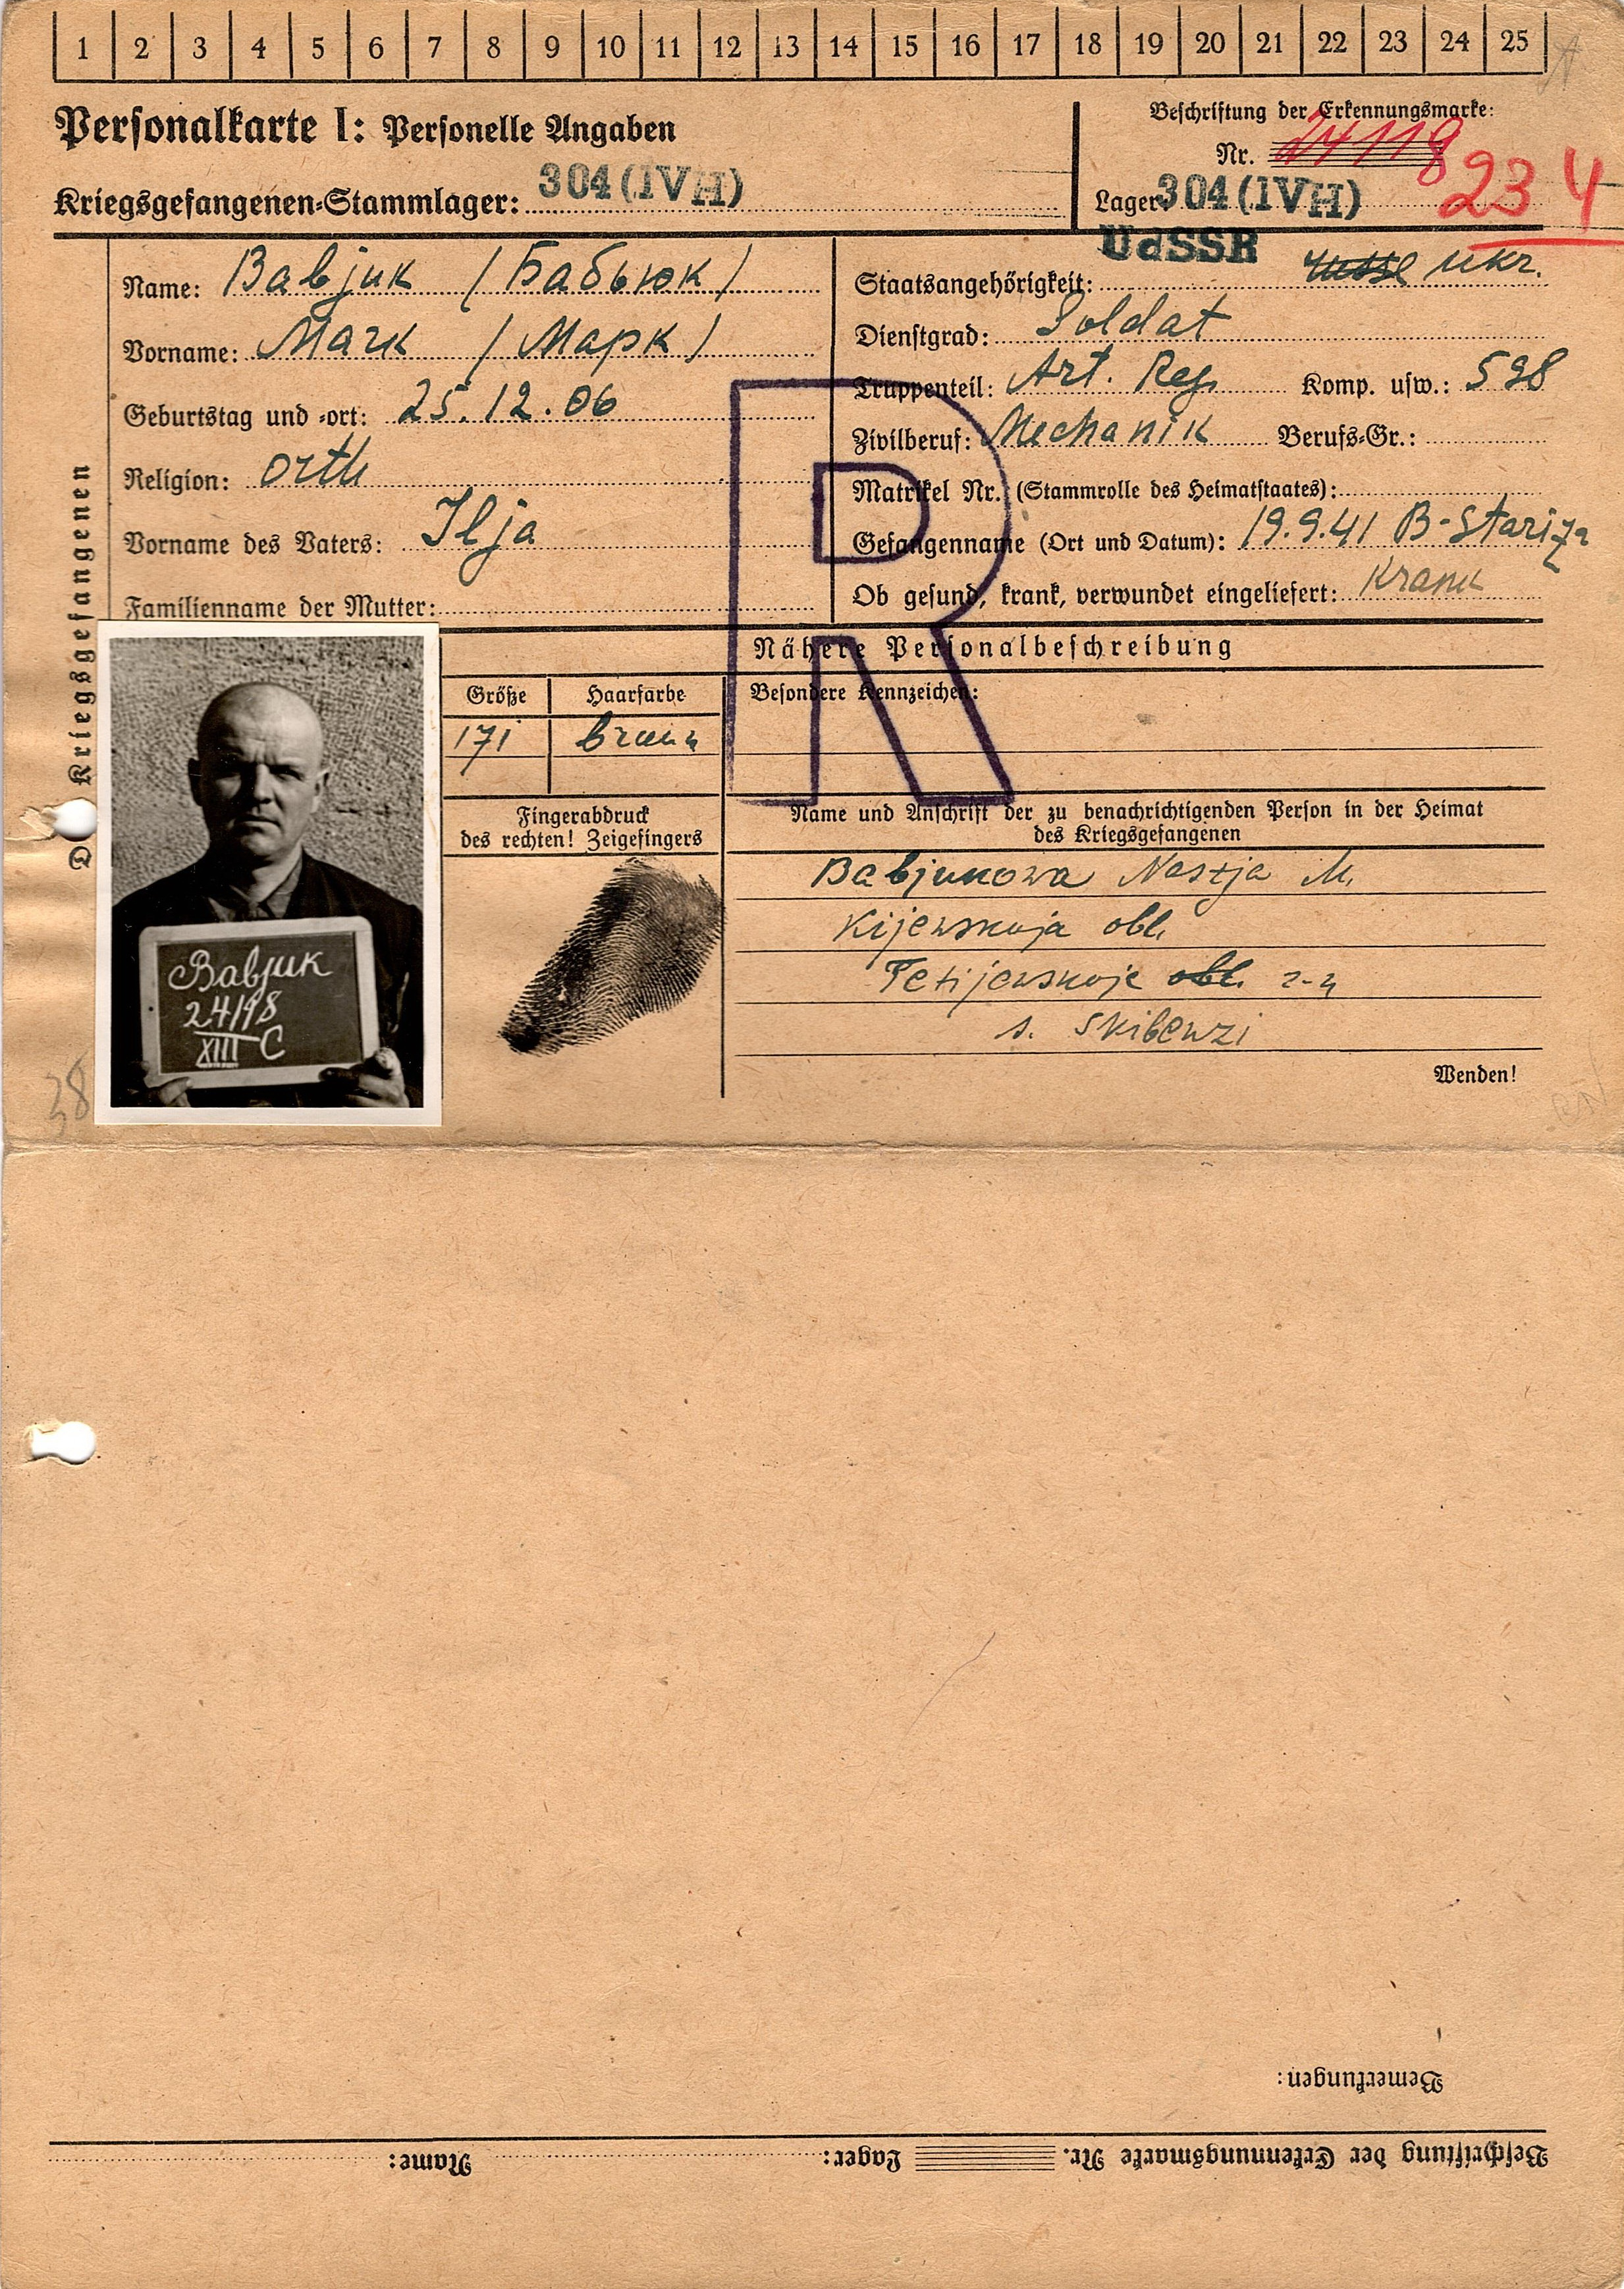 1 2 3 4 5 6 7 8 9 10 11 12 13 14 15 16 17 18 19 20 21 22 23 24 25
Personalkarte I: Personelle Angaben
Kriegsgefangenen-Stammlager: 304 (IVH)
Beschriftung der Erkennungsmarke:
Nr. 24118
Lager: 304 (IVH)
234
des Kriegsgefangenen
Name: Babjuk / Бабьюк /
Vorname: Mark / Марк /
Geburtstag und -ort: 25.12.06
Religion: orth
Vorname des Vaters: Ilja
Familienname der Mutter:
UdSSR
Staatsangehörigkeit: Russe Ukr.
Dienstgrad: Soldat
Truppenteil: Art. Reg. Komp. usw.: 598
Zivilberuf: Mechanik Berufs-Gr.:
Matrikel Nr. (Stammrolle des Heimatstaates):
Gefangennahme (Ort und Datum): 19.9.41 B-Stariza
Ob gesund, krank, verwundet eingeliefert: Krank
R
Nähere Personalbeschreibung
Größe Haarfarbe Besondere Kennzeichen:
171 braun
Fingerabdruck
des rechten! Zeigefingers
Name und Anschrift der zu benachrichtigenden Person in der Heimat
des Kriegsgefangenen
Babjukowa Nastja M.
Kijewskaja obl.
Tetijewskoje obl. r-n
s. Skibenzi
Wenden!
Babjuk
24118
XIII C
38
Bemerkungen:
Beschriftung der Erkennungsmarke Nr. Lager: Name: